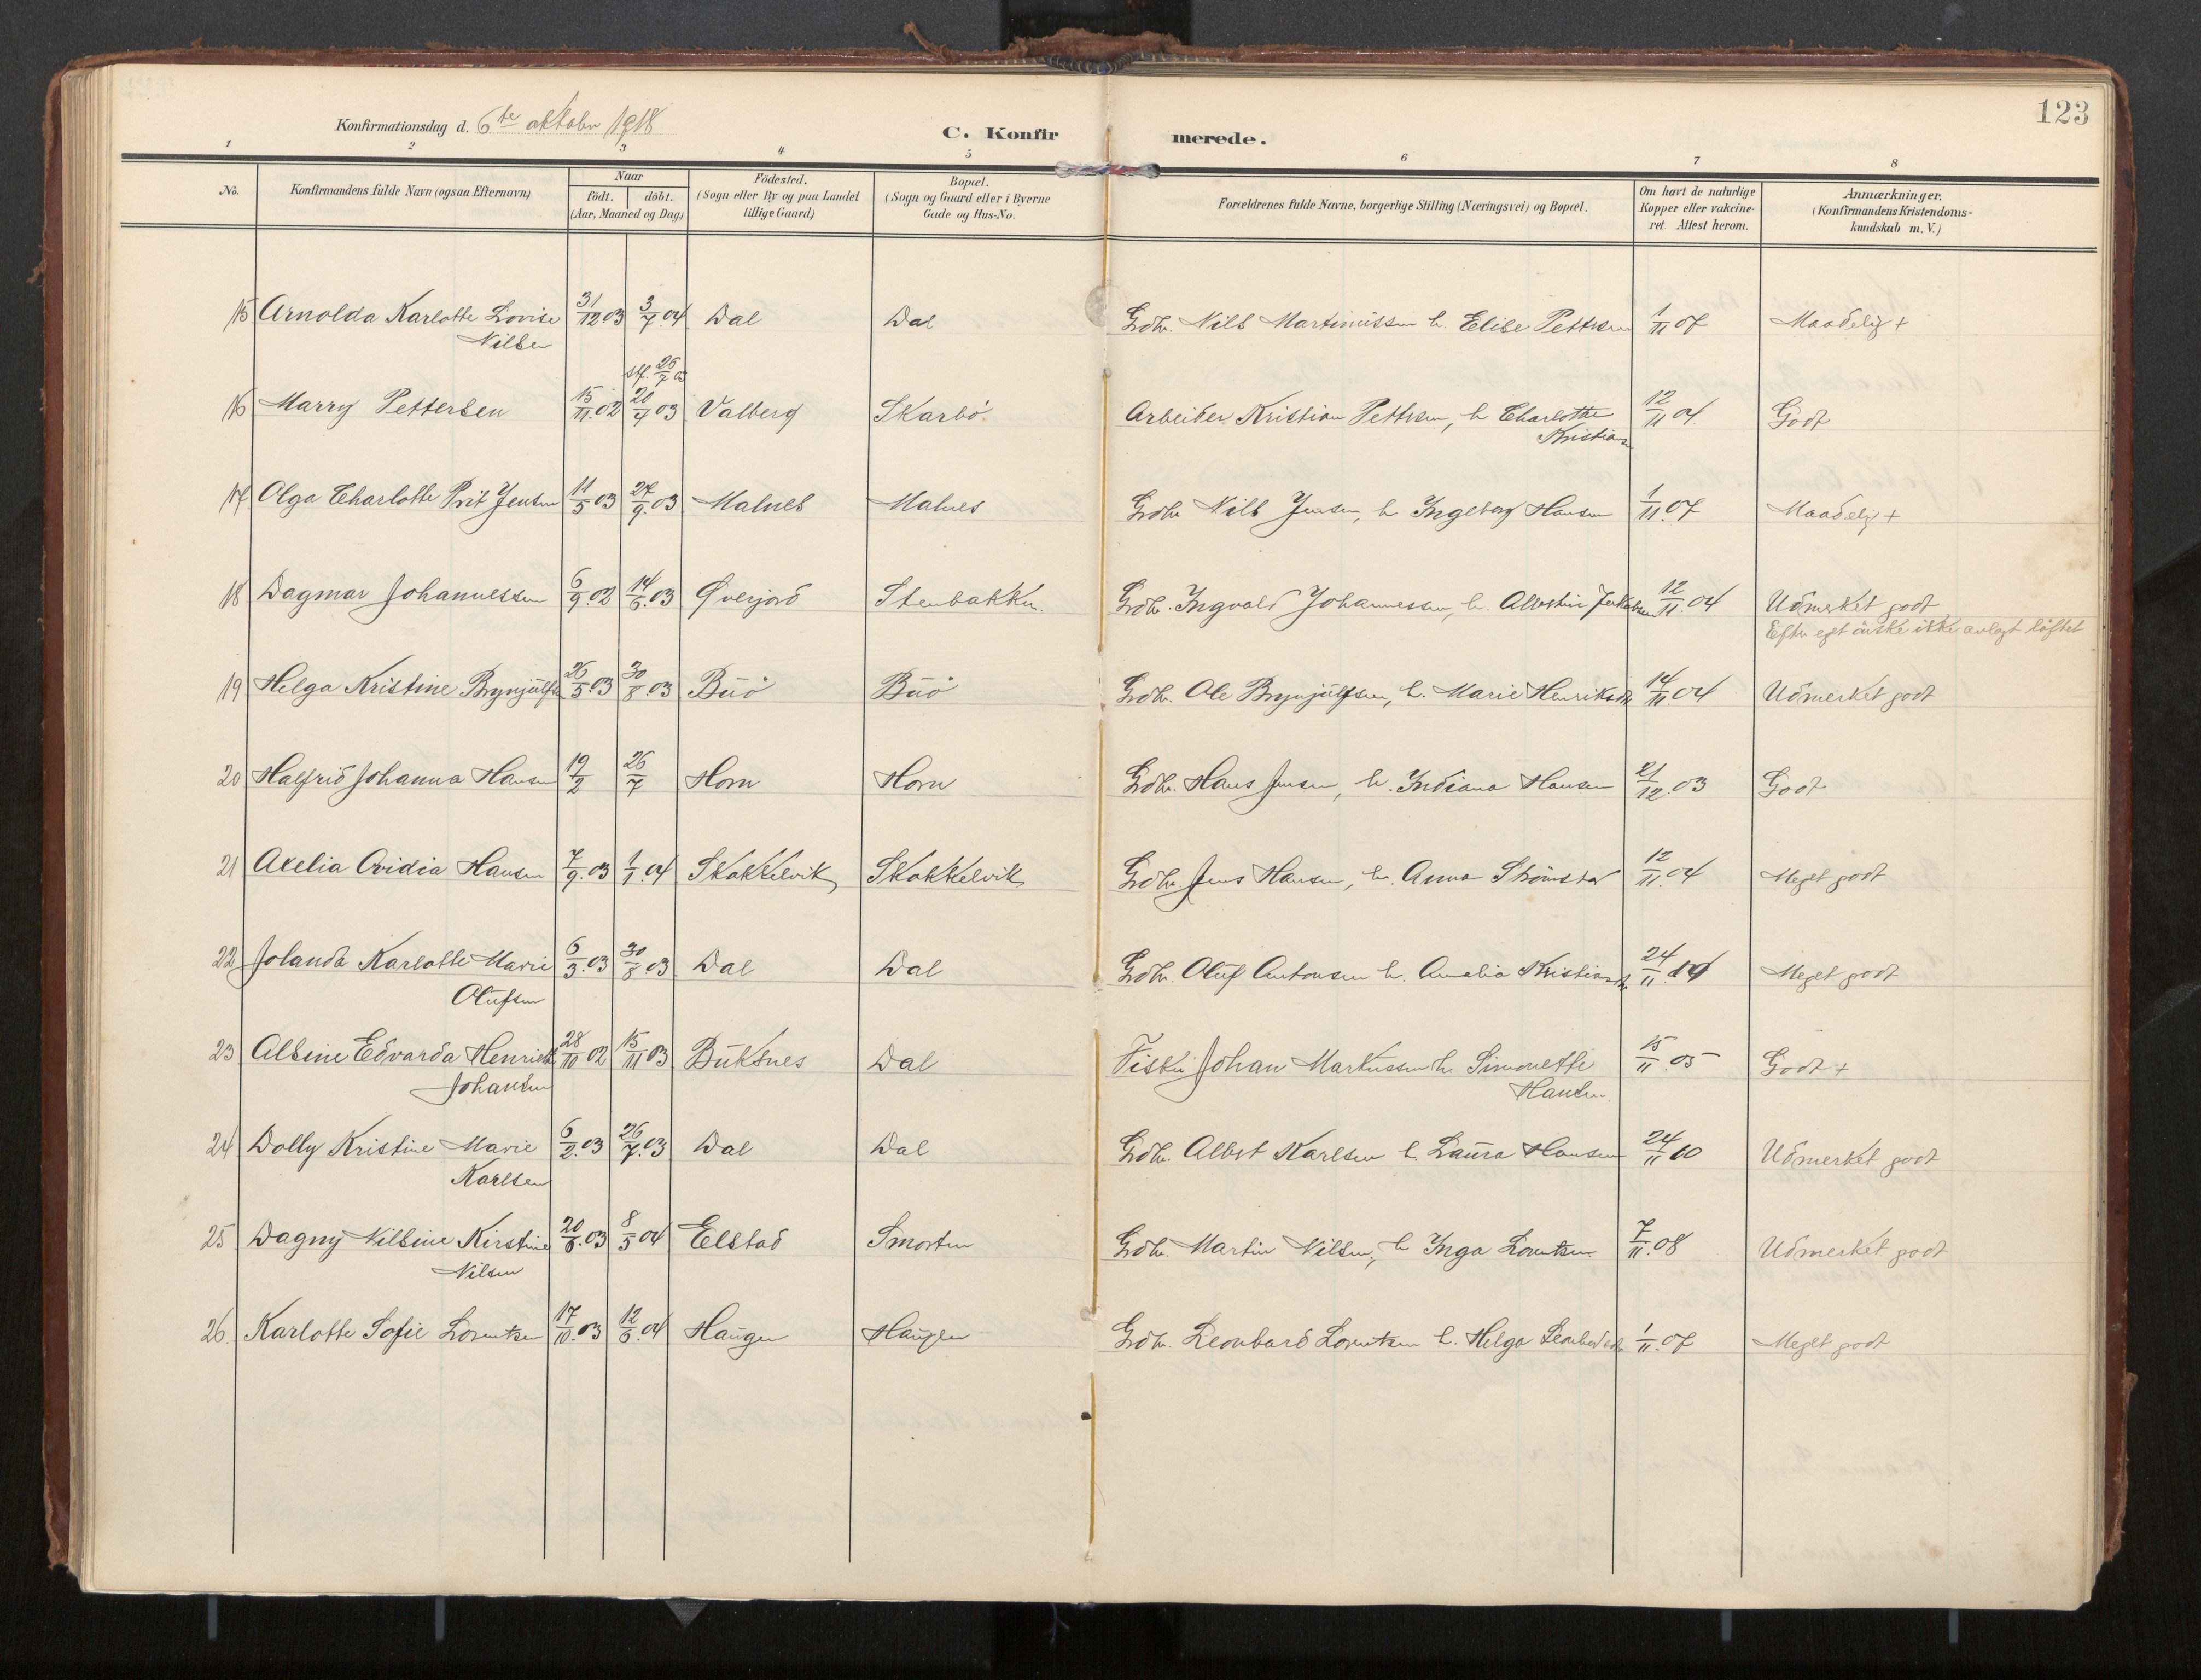 123
Konfirmationsdag d. 6te oktober 1918
C. Konfirmerede.
1 2 3 4 5 6 7 8
No. Konfirmandens fulde Navn (ogsaa Efternavn) Naar födt. döbt. (Aar, Maaned og Dag) Födested. (Sogn eller By og paa Landet tillige Gaard) Bopæl. (Sogn og Gaard eller i Byerne Gade og Hus-No. Forældrenes fulde Navne, borgerlige Stilling (Næringsvei) og Bopæl. Om havt de naturlige Kopper eller vakcineret. Attest herom. Anmærkninger. (Konfirmandens Kristendomskundskab m. V.)
15 Arnolda Karlotte Lovise 31/12 03 3/7.04 Dal Dal Grdbr. Nils Martinussen h. Elise Pettersen 1/11 07 Maadelig +
Nilsen
stf. 26/7 03
16 Marry Pettersen 15/11.02 20/4 03 Valberg Skarbö. Arbeider Kristian Pettersen, h. Charlotte 12/11 04. Godt
Kristians
17 Olga Charlotte Prit Jensen 11/5 03 27/9.03 Malnes Malnes Grdbr Nils Jensen, h. Ingeborg Hansen 1/11.07 Maadelig +
18 Dagmar Johannessen 6/9.02 14/6.03 Øverjord Stenbakken. Grdbr. Ingvald Johannessen, h. Albertine Jakobsen 12/11.04 Udmerket godt
Efter eget önske ikke avlagt löftet
19 Helga Kristine Brynjülfsen 26/5.03 30/8.03 Büö Büö Grdbr. Ole Brynjülfsen, h. Marie Henriksdtr 14/11.04 Udmerket godt
20 Halfrid Johanna Hansen 19/2 26/7 Horn Horn Grdbr. Hans Jensen, h. Indiana Hansen 21/12.03 Godt
21 Axelia Ovidia Hansen 7/9.03 1/1.04 Skokkelvik Skokkelvik Grdbr. Jens Hansen, h. Anna Strömstad 12/11.04 Meget godt
22 Jolanda Karlotte Marie 6/3.03 30/8 03 Dal Dal Grdbr. Olüf Antonsen h. Amalia Kristiansdtr 24/11 Meget godt
Olüfsen
23 Albine Edvarda Henriette 28/10 02 15/11 03 Büksnes Dal Fisker Johan Markussen h. Simonette 15/11.05 Godt +
Johansen Hansen.
24 Dolly Kristine Marie 6/2.03 26/7.03 Dal Dal Grdbr. Albert Karlsen h. Laüra Hansen 24/11 10 Udmerket godt
Karlsen
25 Dagny Nilsine Kirstine 20/8.03 8/5 04 Elstad Smorten Grdbr. Martin Nilsen, h Inga Lorentzen 7/11.08 Udmerket godt
Nilsen
26. Karlotte Sofie Lorentzen 17/10.03 12/6.04 Haügen Haügen Grdbr. Leonhard Lorentzen h. Helga Leonhardsdtr 1/11.07 Meget godt